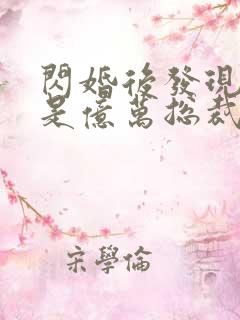 閃婚後發現
是億萬總裁
宋學倫